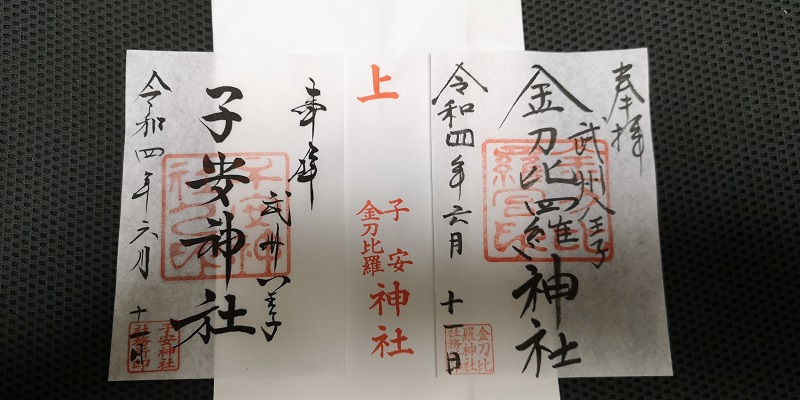 奉拝
武州八王子
金刀比羅神社
令和四年六月十一日
金刀比
羅神社
社務所
上
子安
金刀比羅
神社
奉拝
武州八王子
子安神社
令和四年六月十一日
子安神社
社務所印